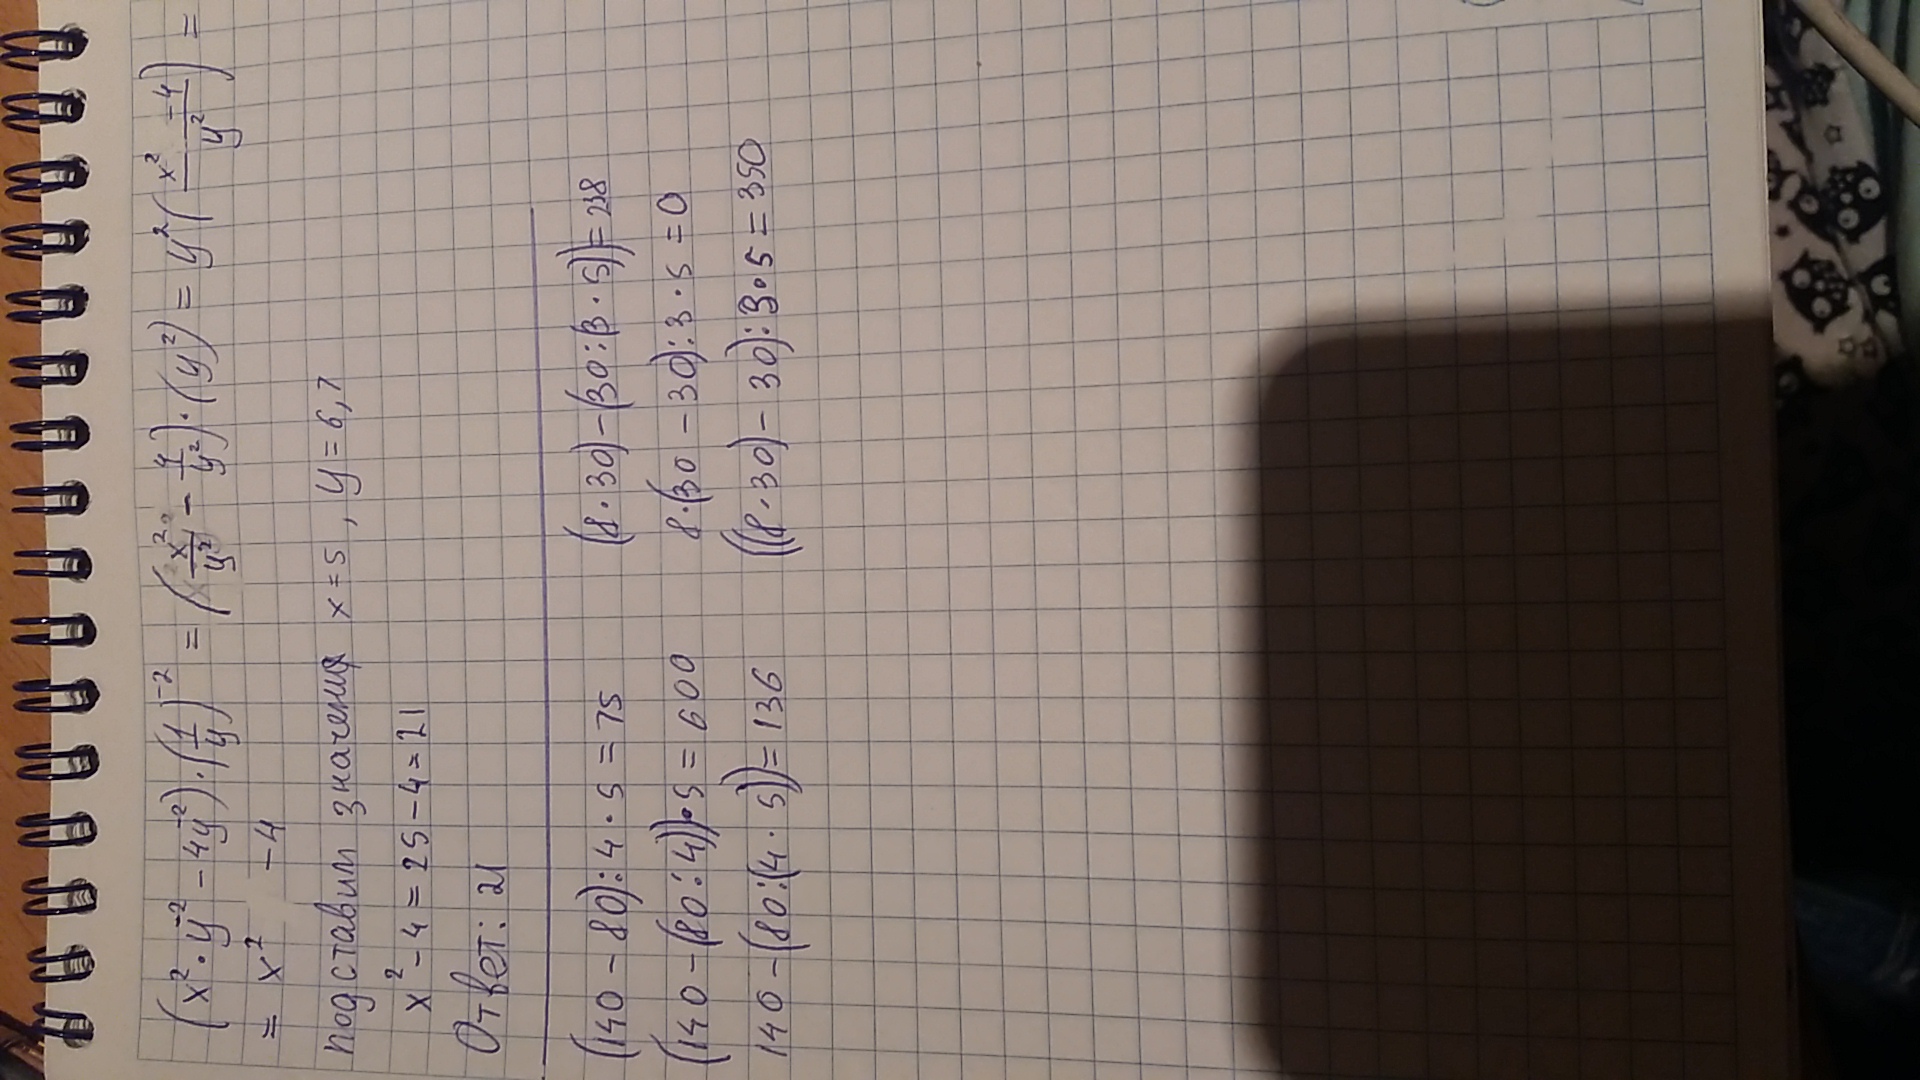 (x²·y⁻² - 4y⁻²)·(1/y)⁻² = (x²/y² - 4/y²)·(y²) = y²(x² - 4/y²) =
= x² - 4
подставим значения x = 5, y = 6,7
x² - 4 = 25 - 4 = 21
Ответ: 21
(140 - 80):4·5 = 75
(140 - (80:4))·5 = 600
140 - (80:(4·5)) = 136
(8·30) - (30:(3·5)) = 238
8·(30 - 30):3·5 = 0
((8·30) - 30):3·5 = 350